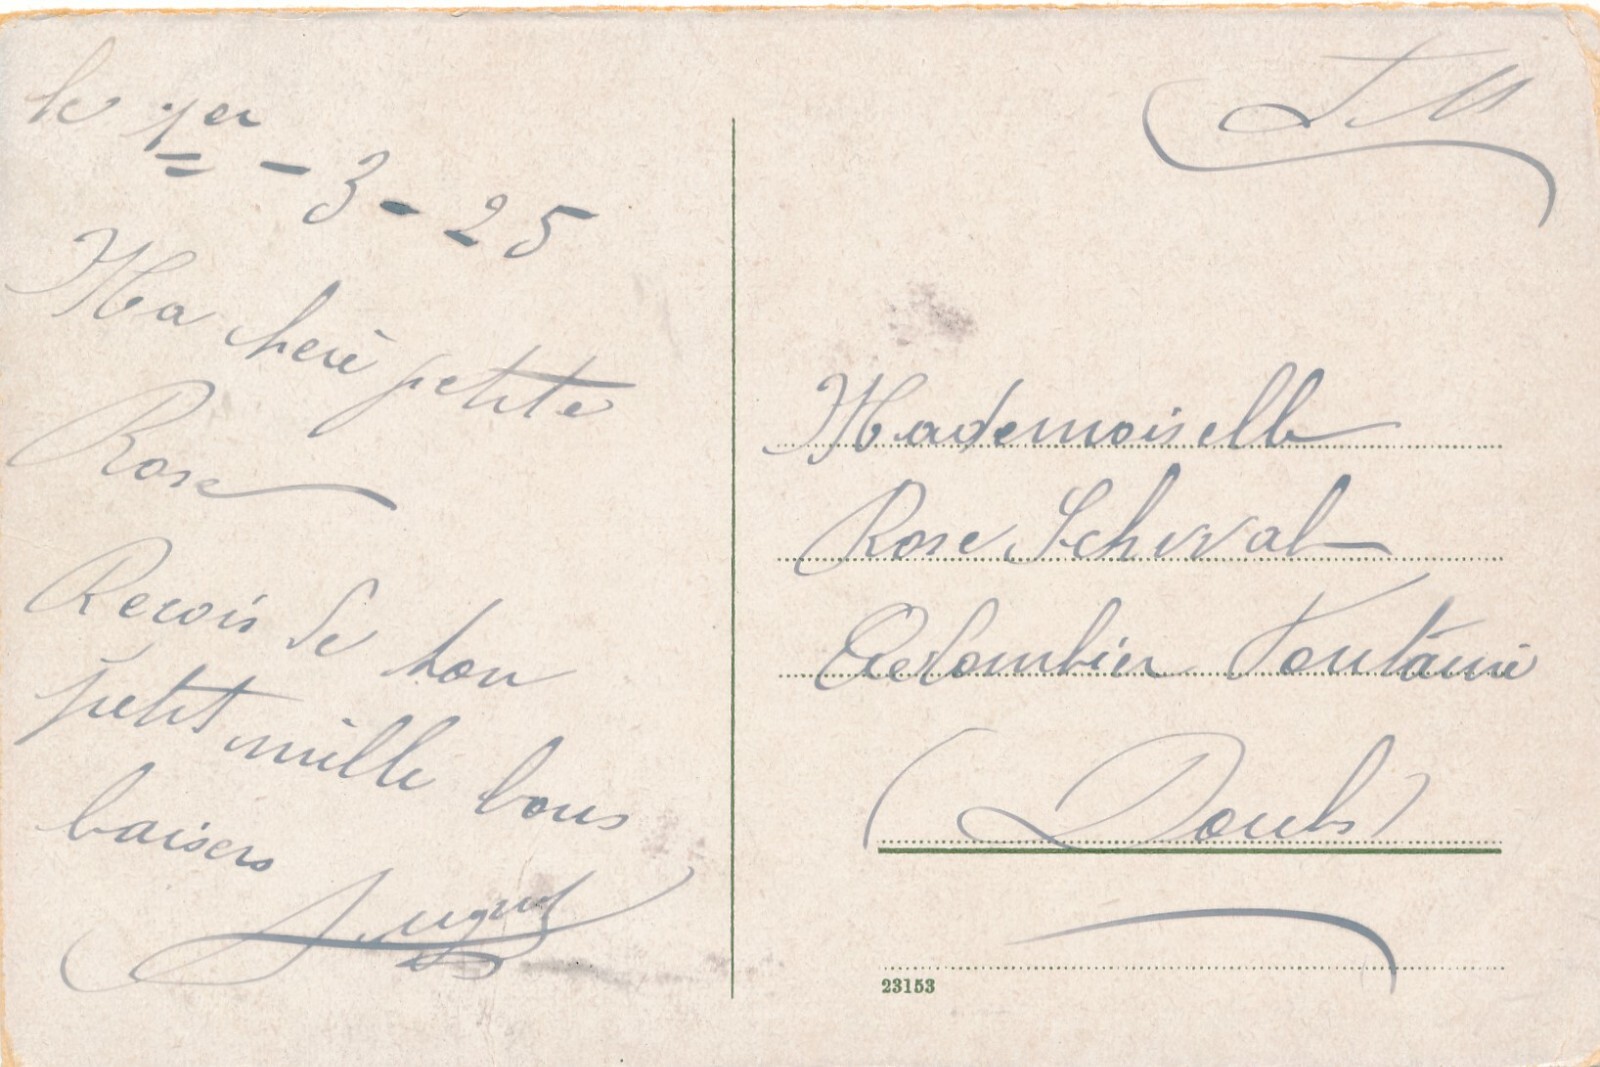 le 1er - 3 - 25
Ma cherè petite
Rose
Recois de ton
petit mille bons
baisers
F.M
Mademoiselle
Rose
à Colombier Fontaine
(Doubs)
23153